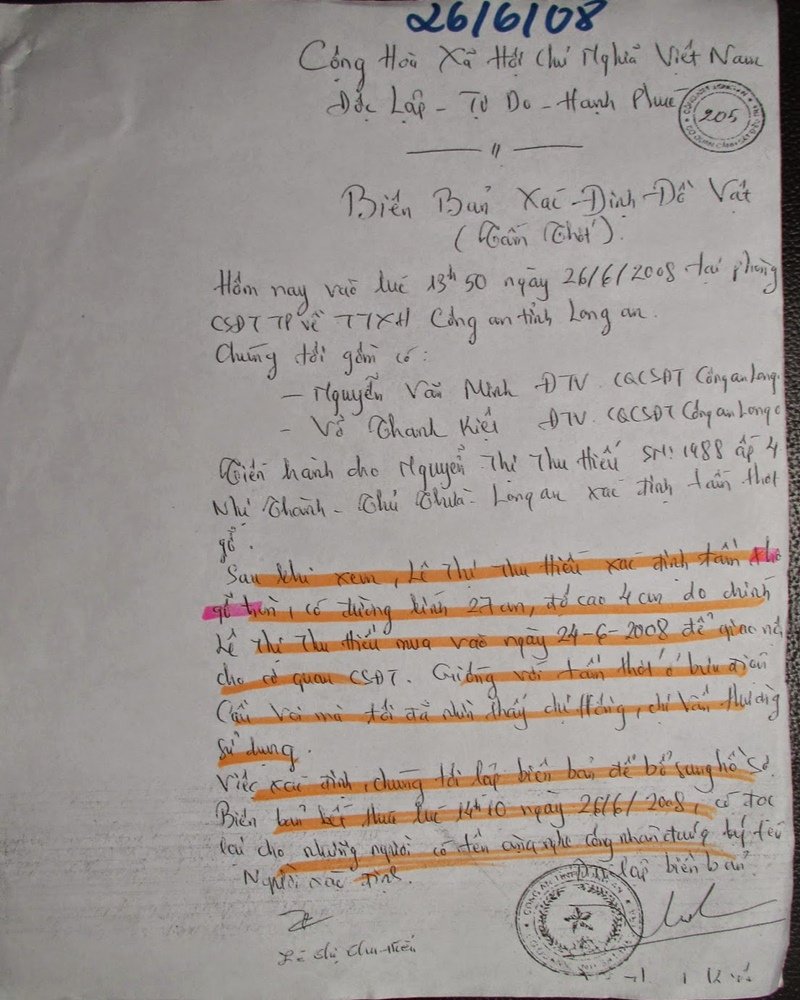 26/6/08
Cộng Hoà Xã Hội Chủ Nghĩa Việt Nam
Độc Lập - Tự Do - Hạnh Phúc
205
Biên Bản Xác - Định - Đồ Vật
(Tấm Thớt).
Hôm nay vào lúc 13h50 ngày 26/6/2008 tại phòng
CSĐT TP về TTXH Công an tỉnh Long an.
Chúng tôi gồm có:
- Nguyễn Văn Minh ĐTV. CQCSĐT Công an Long
- Võ Thanh Kiệt ĐTV. CQCSĐT Công an Long
Tiến hành cho Nguyễn Thị Thu Hiếu SN: 1988 ấp 4
Nhị Thành - Thủ Thừa - Long an xác định tấm thớt
gỗ.
Sau khi xem, Lê Thị Thu Hiếu xác định tấm
gỗ tròn, có đường kính 27cm, độ cao 4cm do chính
Lê Thị Thu Hiếu mua vào ngày 24-6-2008 để giao
cho cơ quan CSĐT. Giống với tấm thớt ở bưu điện
Cầu Voi mà tôi đã nhìn thấy chị Hồng, chị Vân thường
sử dụng.
Việc xác định, chúng tôi lập biên bản để bổ sung hồ sơ.
Biên bản kết thúc lúc 14h10 ngày 26/6/2008, có đọc
lại cho những người có tên cùng nghe công nhận đúng ký tên
Người xác định. lập biên bản
Lê Thị Thu Hiếu